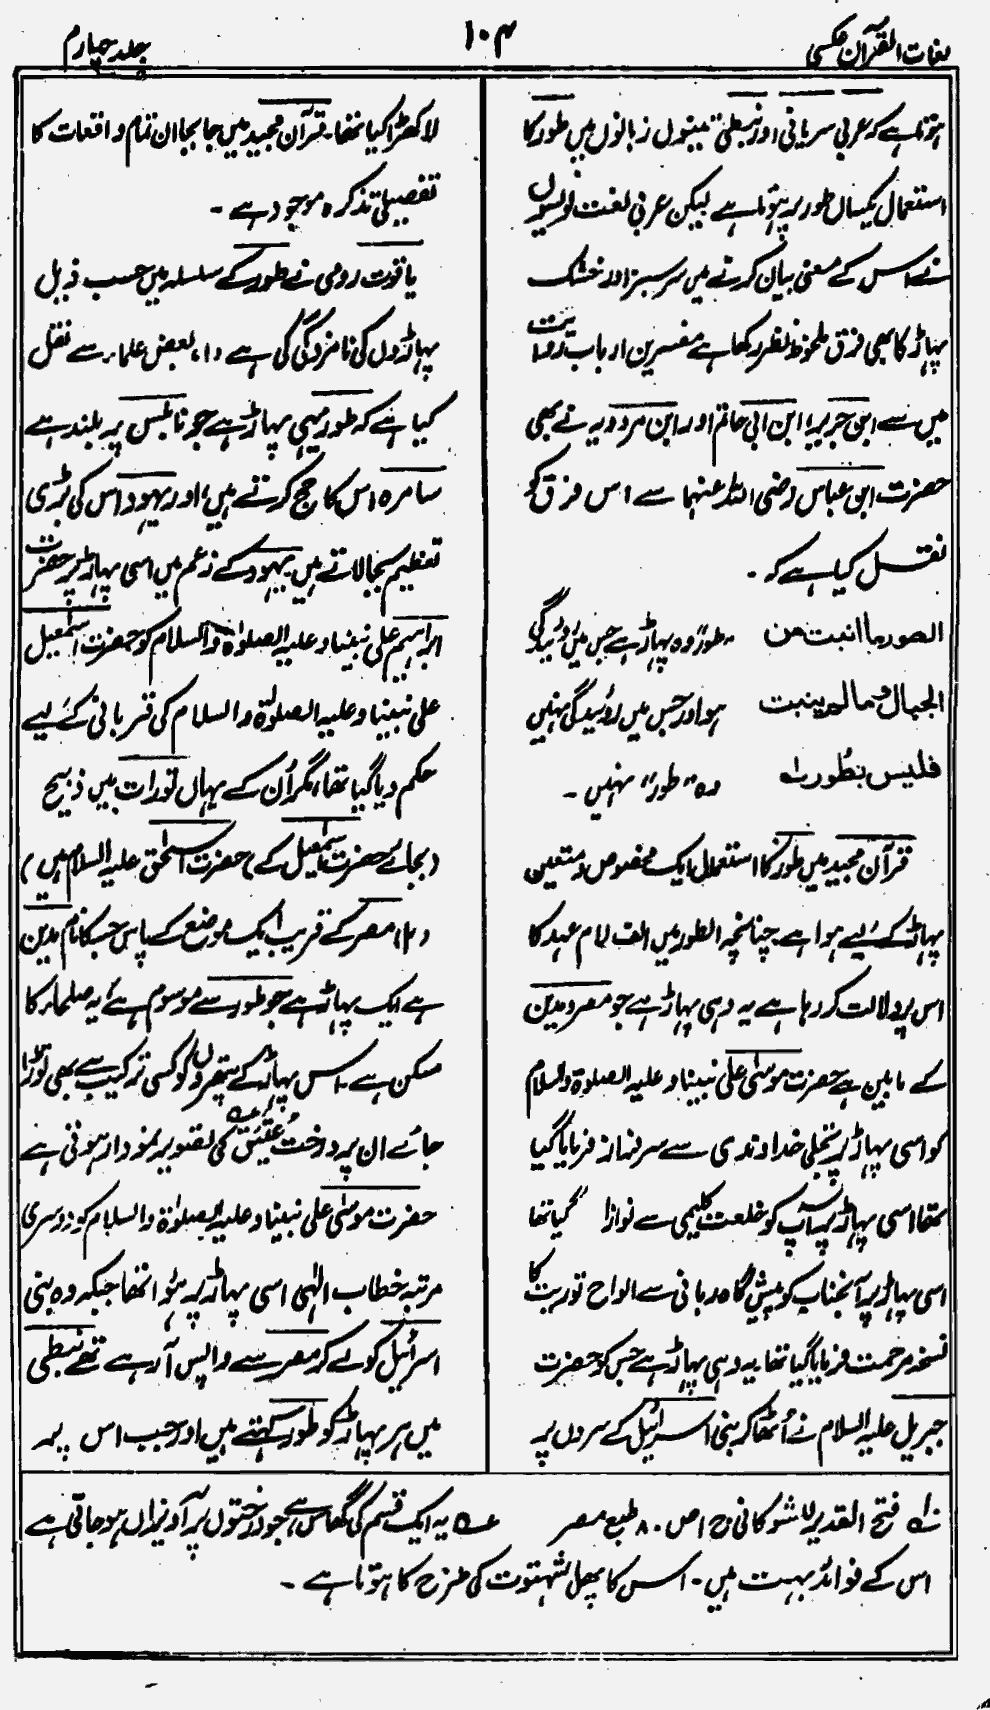 لغات القرآن عکسی
۱۰۴
جلد چہارم
ہوتا ہے کہ عربی سریانی اور نبطی تینوں زبانوں میں طور کا
استعمال یکساں طور پر ہوتا ہے لیکن عربی لغت نویسوں
نے اس کے معنی بیان کرنے میں سرسبز اور خشک
پہاڑ کا بھی فرق ملحوظ نظر رکھا ہے مفسرین ارباب روایت
میں سے ابن جریر، ابن ابی حاتم اور ابن مردویہ نے بھی
حضرت ابن عباس رضی اللہ عنہما سے اس فرق کو
نقل کیا ہے کہ۔
الطور ما انبت من
الجبال وما لم ینبت
فلیس بطور لہ
"طور" وہ پہاڑ ہے جس میں روئیدگی
ہو اور جس میں روئیدگی نہیں
وہ "طور" نہیں۔
قرآن مجید میں طور کا استعمال ایک مخصوص و متعین
پہاڑ کے لیے ہوا ہے۔ چنانچہ الطور میں الف لام عہد کا
اس پر دلالت کر رہا ہے یہ وہی پہاڑ ہے جو مصر و مدین
کے مابین ہے حضرت موسیٰ علی نبینا و علیہ الصلوٰۃ والسلام
کو اسی پہاڑ پر تجلی خداوندی سے سرفراز فرمایا گیا
تھا اسی پہاڑ پر آپ کو خلعت کلیمی سے نوازا گیا تھا
اسی پہاڑ پر آنجناب کو پیش گاہ ربانی سے الواح توریت کا
نسخہ مرحمت فرمایا گیا تھا یہ وہی پہاڑ ہے جس کو حضرت
جبریل علیہ السلام نے اُٹھا کر بنی اسرائیل کے سروں پر
لا کھڑا کیا تھا۔ قرآن مجید میں جا بجا ان تمام واقعات کا
تفصیلی تذکرہ موجود ہے۔
یاقوت رومی نے طور کے سلسلہ میں حسب ذیل
پہاڑوں کی نامزدگی کی ہے (۱) بعض علماء سے نقل
کیا ہے کہ طور یہی پہاڑ ہے جو نابلس پر بلند ہے
سامرہ اس کا حج کرتے ہیں، اور یہود اس کی بڑی
تعظیم بجا لاتے ہیں یہود کے زعم میں اسی پہاڑ پر حضرت
ابراہیم علی نبینا و علیہ الصلوٰۃ والسلام کو حضرت اسمٰعیل
علی نبینا و علیہ الصلوٰۃ والسلام کی قربانی کے لیے
حکم دیا گیا تھا، مگر اُن کے یہاں تورات میں ذبیح
(بجائے حضرت اسمٰعیل کے) حضرت اسحٰق علیہ السلام ہیں)
(۲) مصر کے قریب ایک موضع کے پاس جس کا نام مدین
ہے ایک پہاڑ ہے جو طور سے موسوم ہے یہ صلحاء کا
مسکن ہے۔ اس پہاڑ کے پتھروں کو کسی ترکیب سے بھی توڑا
جائے ان پر درخت عُلَّیق کی تصویر نمودار ہوتی ہے
حضرت موسیٰ علی نبینا و علیہ الصلوٰۃ والسلام کو دوسری
مرتبہ خطاب الٰہی اسی پہاڑ پر ہوا تھا جبکہ وہ بنی
اسرائیل کو لے کر مصر سے واپس آ رہے تھے نبطی
میں ہر پہاڑ کو طور کہتے ہیں اور جب اس پر
لہ فتح القدیر للشوکانی ج ۱ ص ۸۰ طبع مصر عہ یہ ایک قسم کی گھاس ہے جو درختوں پر آویزاں ہو جاتی ہے
اس کے فوائد بہت ہیں۔ اس کا پھل شہتوت کی طرح کا ہوتا ہے۔